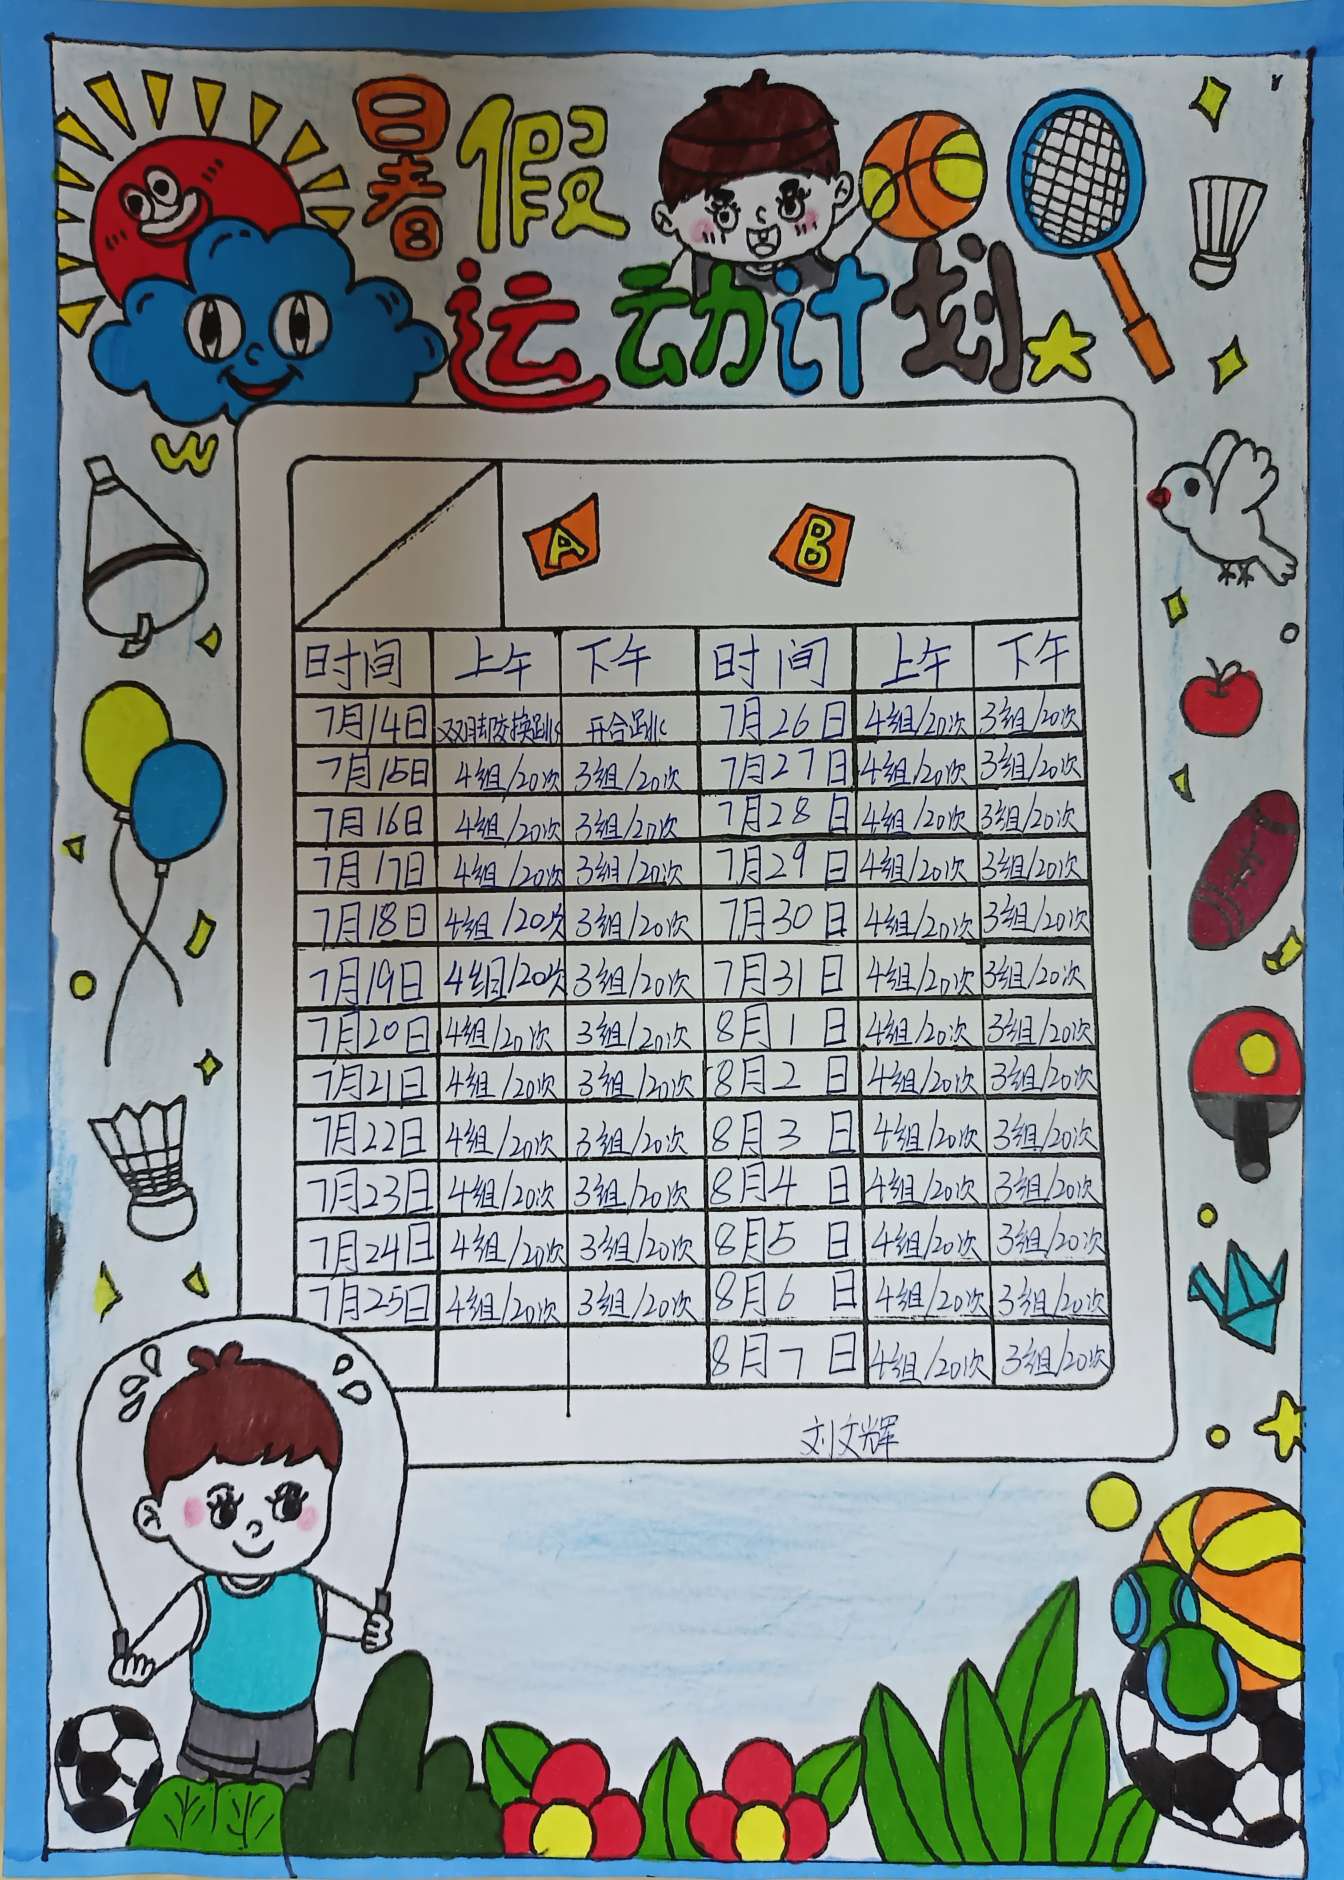 暑假
运动计划
A B
时间 上午 下午 时间 上午 下午
7月14日 双脚交换跳 开合跳 7月26日 4组/20次 3组/20次
7月15日 4组/20次 3组/20次 7月27日 4组/20次 3组/20次
7月16日 4组/20次 3组/20次 7月28日 4组/20次 3组/20次
7月17日 4组/20次 3组/20次 7月29日 4组/20次 3组/20次
7月18日 4组/20次 3组/20次 7月30日 4组/20次 3组/20次
7月19日 4组/20次 3组/20次 7月31日 4组/20次 3组/20次
7月20日 4组/20次 3组/20次 8月1日 4组/20次 3组/20次
7月21日 4组/20次 3组/20次 8月2日 4组/20次 3组/20次
7月22日 4组/20次 3组/20次 8月3日 4组/20次 3组/20次
7月23日 4组/20次 3组/20次 8月4日 4组/20次 3组/20次
7月24日 4组/20次 3组/20次 8月5日 4组/20次 3组/20次
7月25日 4组/20次 3组/20次 8月6日 4组/20次 3组/20次
8月7日 4组/20次 3组/20次
刘文辉